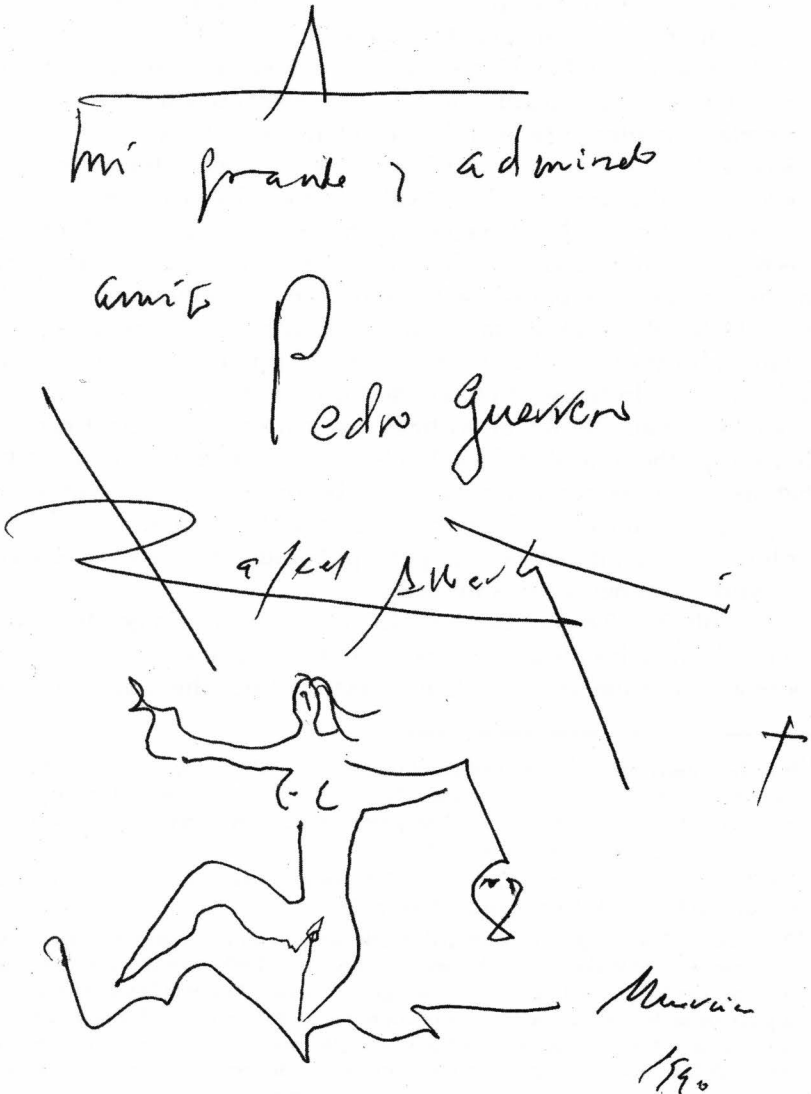 A
mi grande y admirado
amigo Pedro Guerrero
Rafael Alberti
Murcia
1990